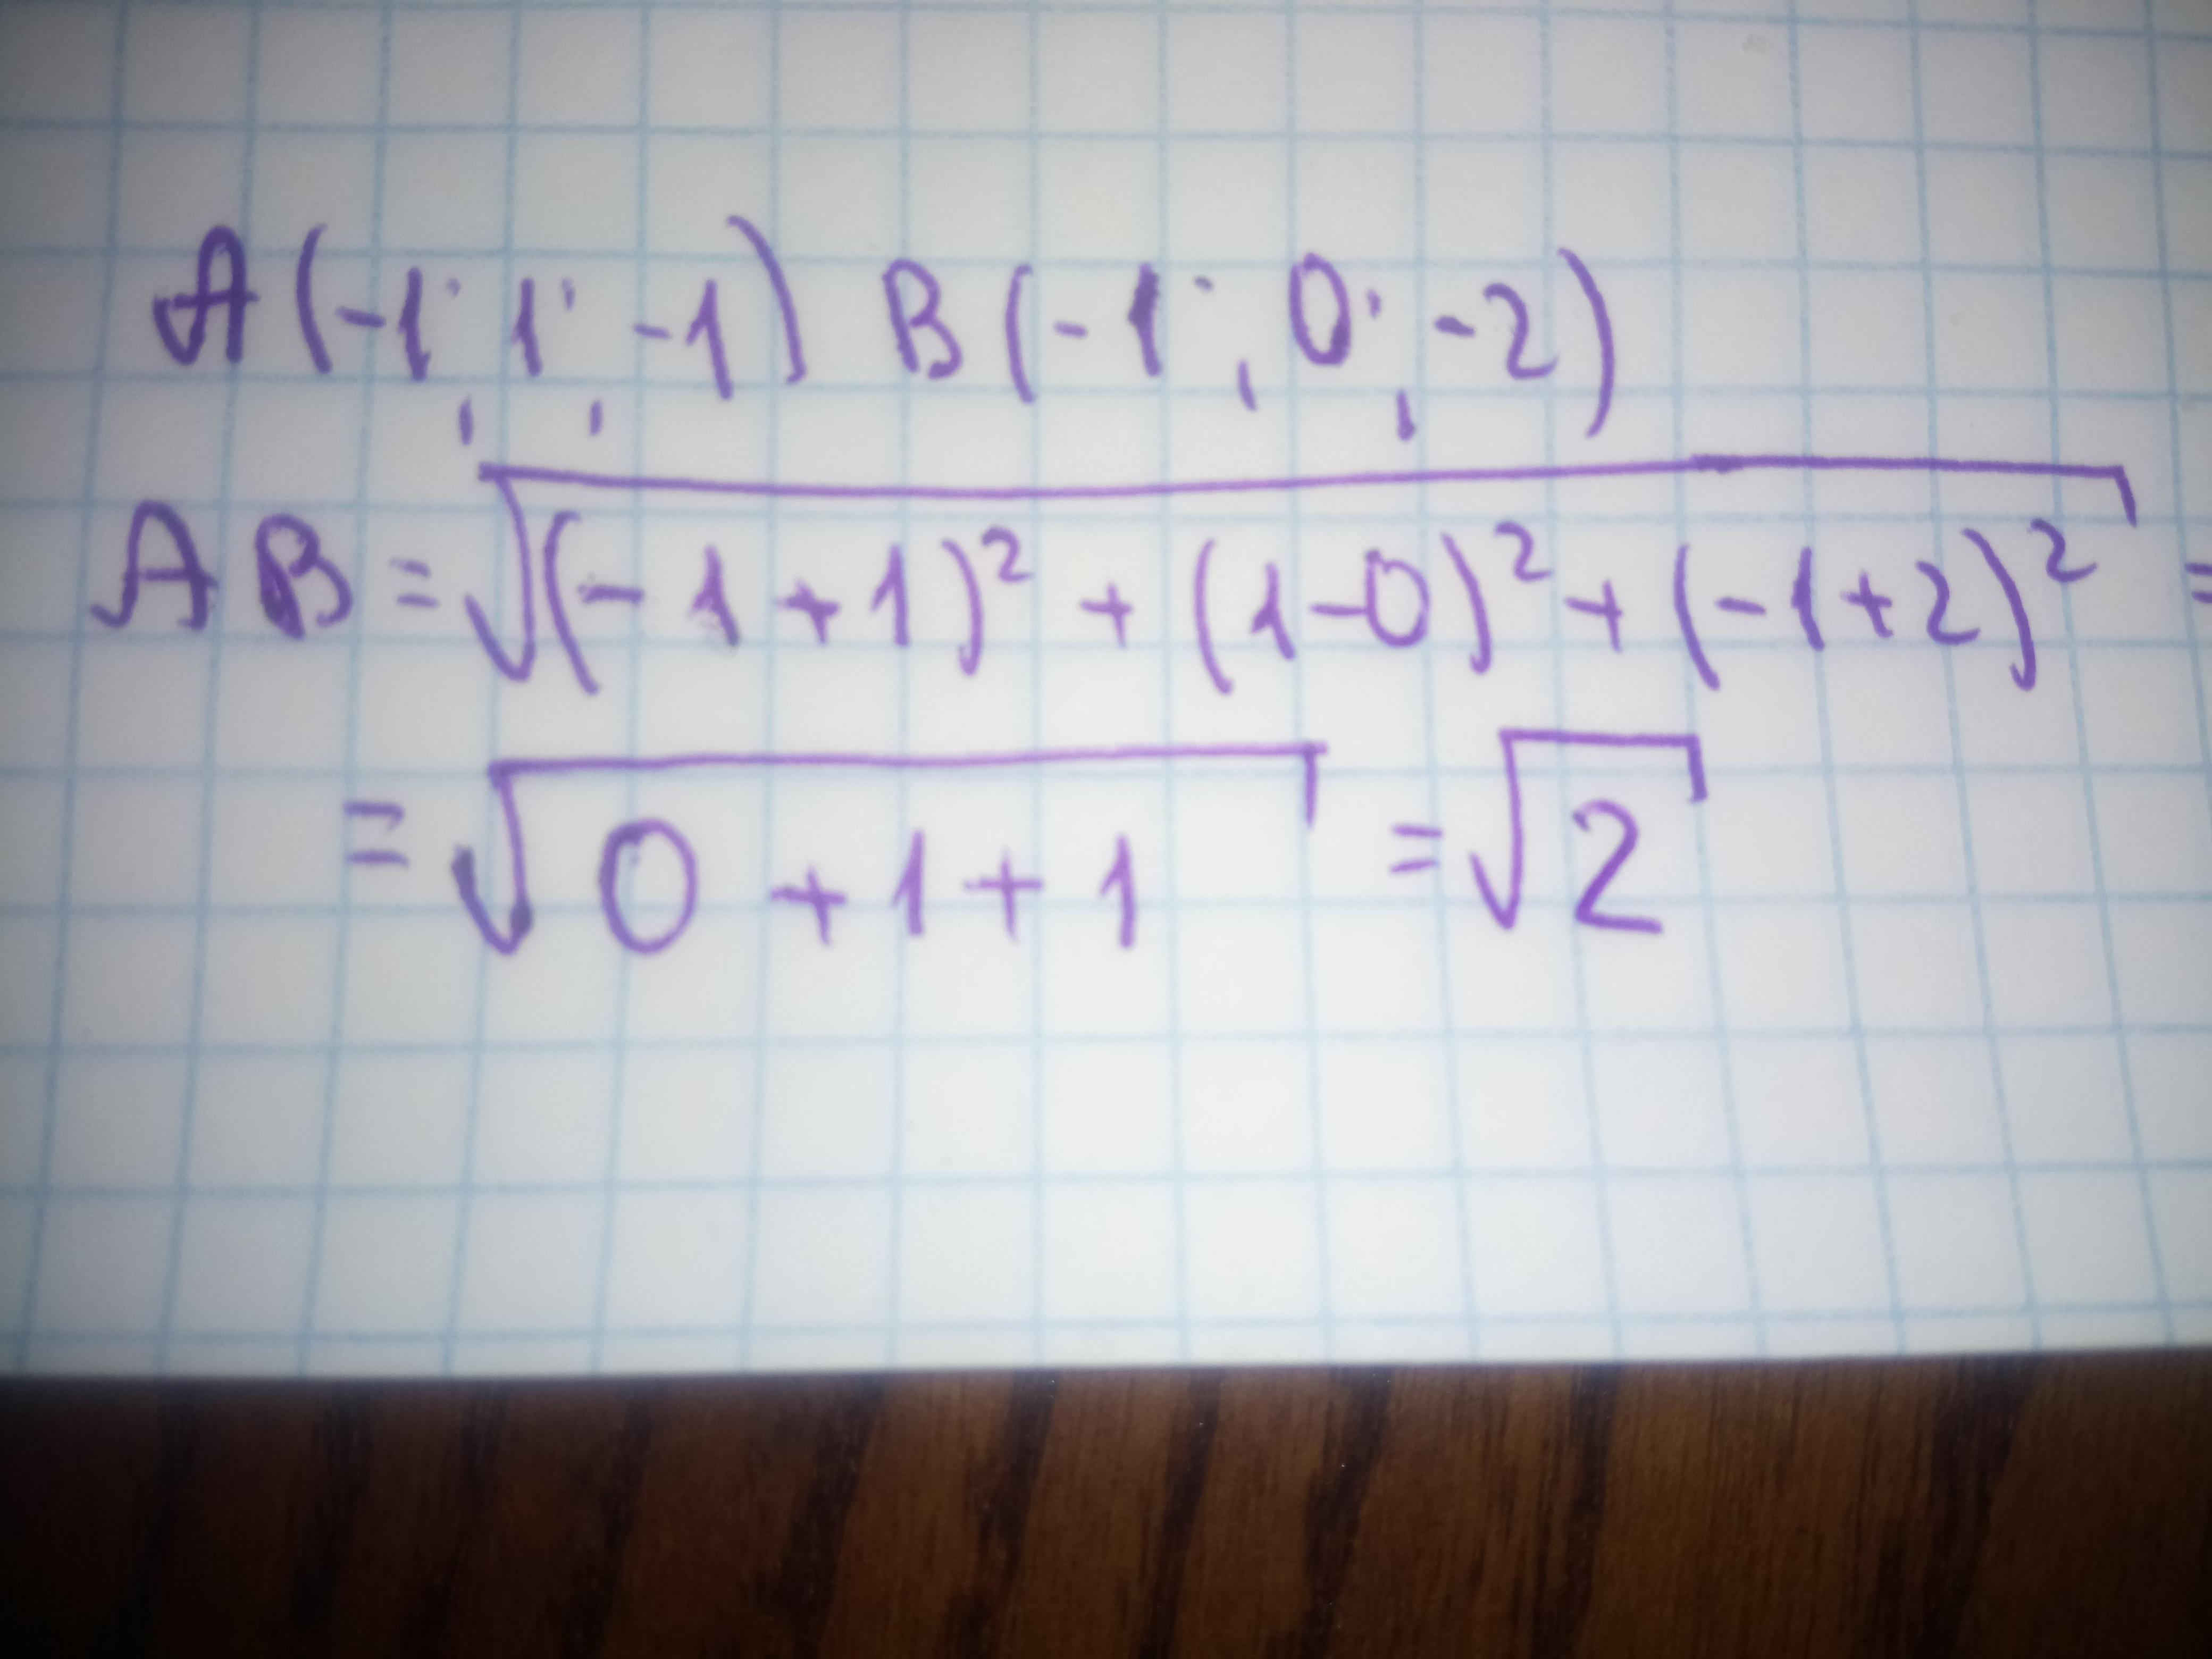 A(-1; 1; -1) B(-1; 0; -2)
AB = √((-1+1)² + (1-0)² + (-1+2)²) =
= √(0+1+1) = √2